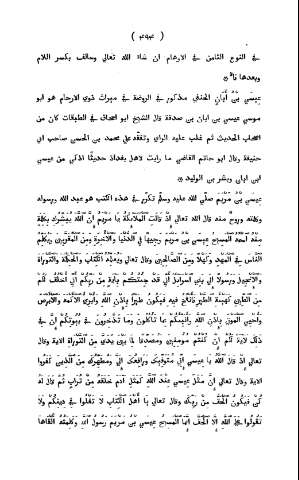 ( ٤٩٤ )
في النوع الثامن في الاوهام ان شاء الله تعالى وحالف بكسر اللام
وبعدها
عيسى بن أبان الحنفي مذكور في الروضة في ميراث ذوي الارحام هو ابو
موسى عيسى بن ابان بن صدقة قال الشيخ ابو اسحاق في الطبقات كان من
اصحاب الحديث ثم غلب عليه الراي وتفقه على محمد بن الحسن صاحب ابي
حنيفة وقال ابو حاتم القاضي ما رايت لاهل بغداد حدثا اذكى من عيسى
ابن ابان وبشر بن الوليد
عيسى بن مريم صلى الله عليه وسلم تكرر في هذه الكتب هو عبد الله ورسوله
وكلمته وروح منه قال الله تعالى اذ قالت الملائكة يا مريم إن الله يبشرك بكلمة
منه اسمه المسيح عيسى بن مريم وجيها في الدنيا والاخرة ومن المقربين ويكلم
الناس في المهد وكهلا ومن الصالحين وقال تعالى ويعلمه الكتاب والحكمة والتوراة
والانجيل ورسولا الى بني اسرائيل أني قد جئتكم بآية من ربكم أني اخلق لكم
من الطين كهيئة الطير فانفخ فيه فيكون طيرا بإذن الله وابرئ الاكمه والابرص
وأحيي الموتى بإذن الله وأنبئكم بما تأكلون وما تدخرون في بيوتكم إن في
ذلك لآية لكم إن كنتم مؤمنين ومصدقا لما بين يدي من التوراة الاية وقال
تعالى اذ قال الله يا عيسى إني متوفيك ورافعك إلي ومطهرك من الذين كفروا
الاية وقال تعالى إن مثل عيسى عند الله كمثل آدم خلقه من تراب ثم قال له
كن فيكون الحق من ربك وقال تعالى يا أهل الكتاب لا تغلوا في دينكم ولا
تقولوا على الله الا الحق إنما المسيح عيسى بن مريم رسول الله وكلمته ألقاها